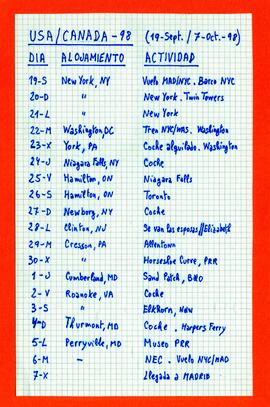 USA/CANADA-98 (19-Sept. / 7-Oct.-98)
DIA ALOJAMIENTO ACTIVIDAD
19-S New York, NY Vuelo MAD/NYC. Barco NYC
20-D " New York. Twin Towers
21-L " New York
22-M Washington, DC Tren NYC/WAS. Washington
23-X York, PA Coche alquilado. Washington
24-J Niagara Falls, NY Coche
25-V Hamilton, ON Niagara Falls
26-S Hamilton, ON Toronto
27-D Newburg, NY Coche
28-L Clinton, NJ Se van las esposas//Elizabeth
29-M Cresson, PA Allentown
30-X " Horseshoe Curve, PRR
1-J Cumberland, MD Sand Patch, B&O
2-V Roanoke, VA Coche
3-S " Elkhorn, N&W
4-D Thurmont, MD Coche. Harpers Ferry
5-L Perryville, MD Museo PRR
6-M - NEC. Vuelo NYC/MAD
7-X Llegada a MADRID